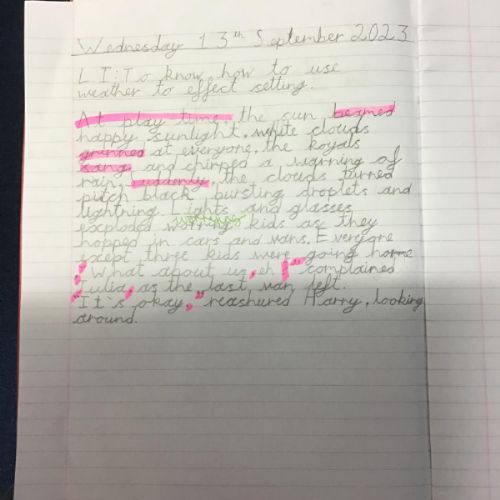 Wednesday 13th September 2023
LI: To know how to use
weather to effect setting.
At play time, the sun beamed
happy sunlight, white clouds
grinned at everyone, the royals
sang and chirped a warning of
rain, suddenly, the clouds turned
pitch black bursting droplets and
lightning. Lights and glasses
worrying
exploded worring kids as they
hopped in cars and vans. Everyone
except three kids were going home
"What about us, eh!" complained
Julia, as the last van left.
"It's okay," reashured Harry, looking
around.